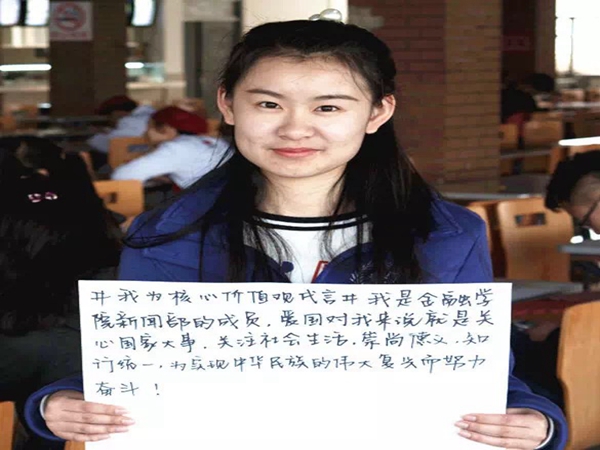 #我为核心价值观代言#我是金融学
院新闻部的成员,爱国对我来说就是关
心国家大事,关注社会生活,崇尚德义,知
行统一,为实现中华民族的伟大复兴而努力
奋斗!